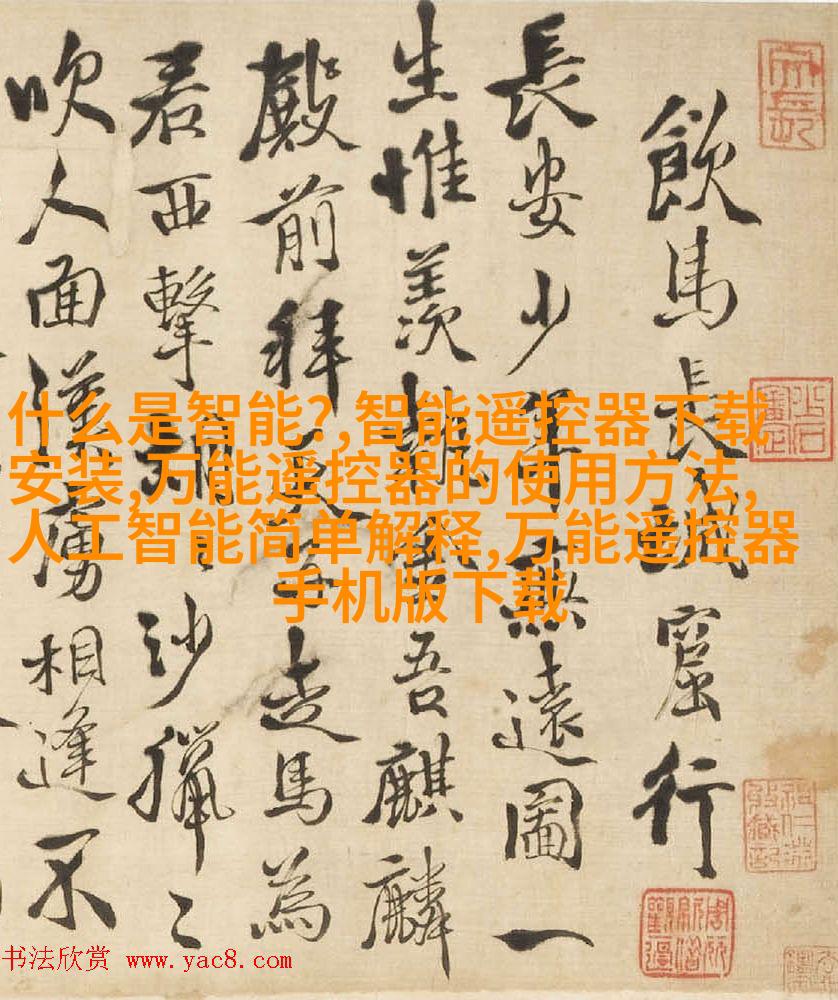 飲馬長城窟行
長安少年無遠圖一
生惟羨執金吾麒麟
殿前拜天子走馬為
君西擊胡〻沙獵〻
吹人面漢虜相逢不
什么是智能?,智能遥控器下载
安装,万能遥控器的使用方法,
人工智能简单解释,万能遥控器
手机版下载
书法欣赏 www.yac8.com